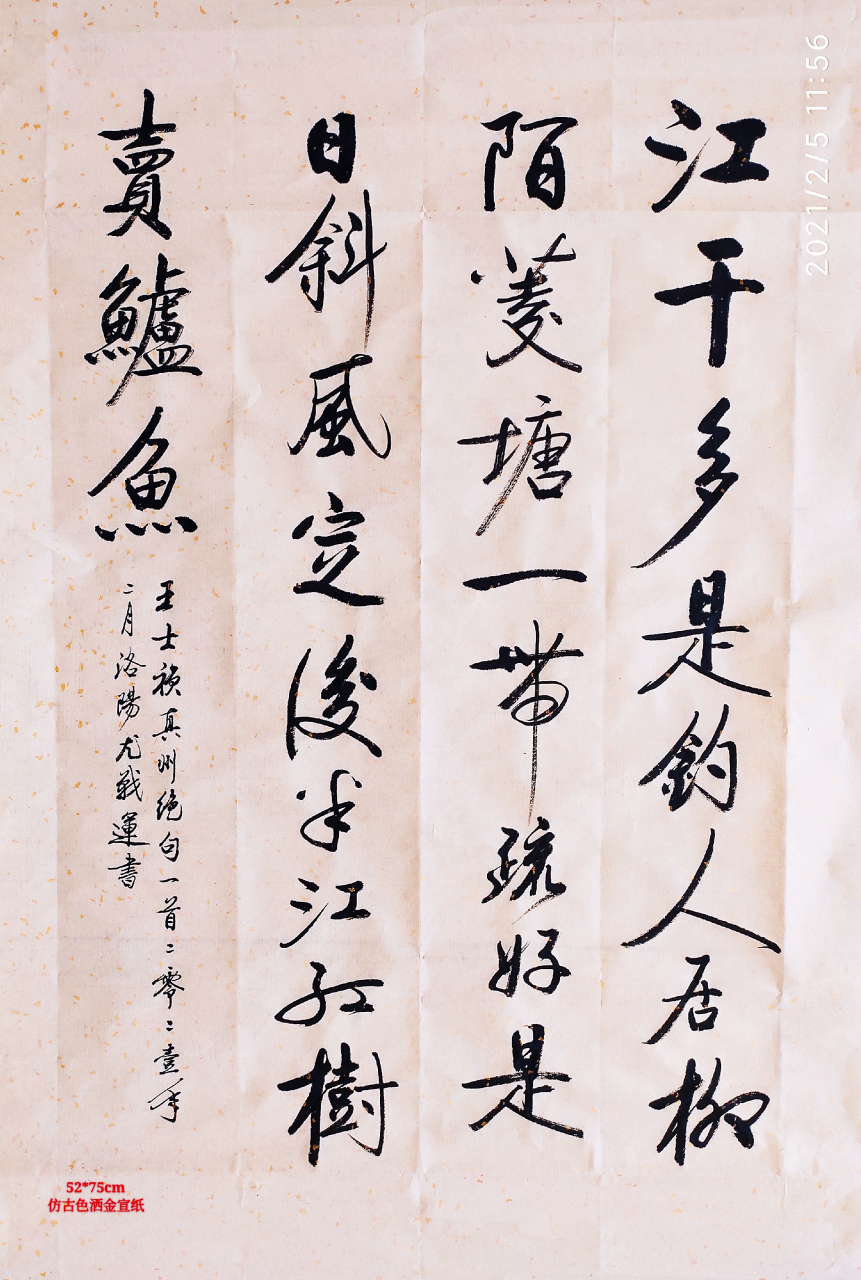 江干多是釣人居柳
陌菱塘一帶疏好是
日斜風定後半江紅樹
賣鱸魚
王士祯真州绝句一首二零二壹年
二月洛陽尤戰運書
2021/2/5 11:56
52*75cm
仿古色洒金宣纸